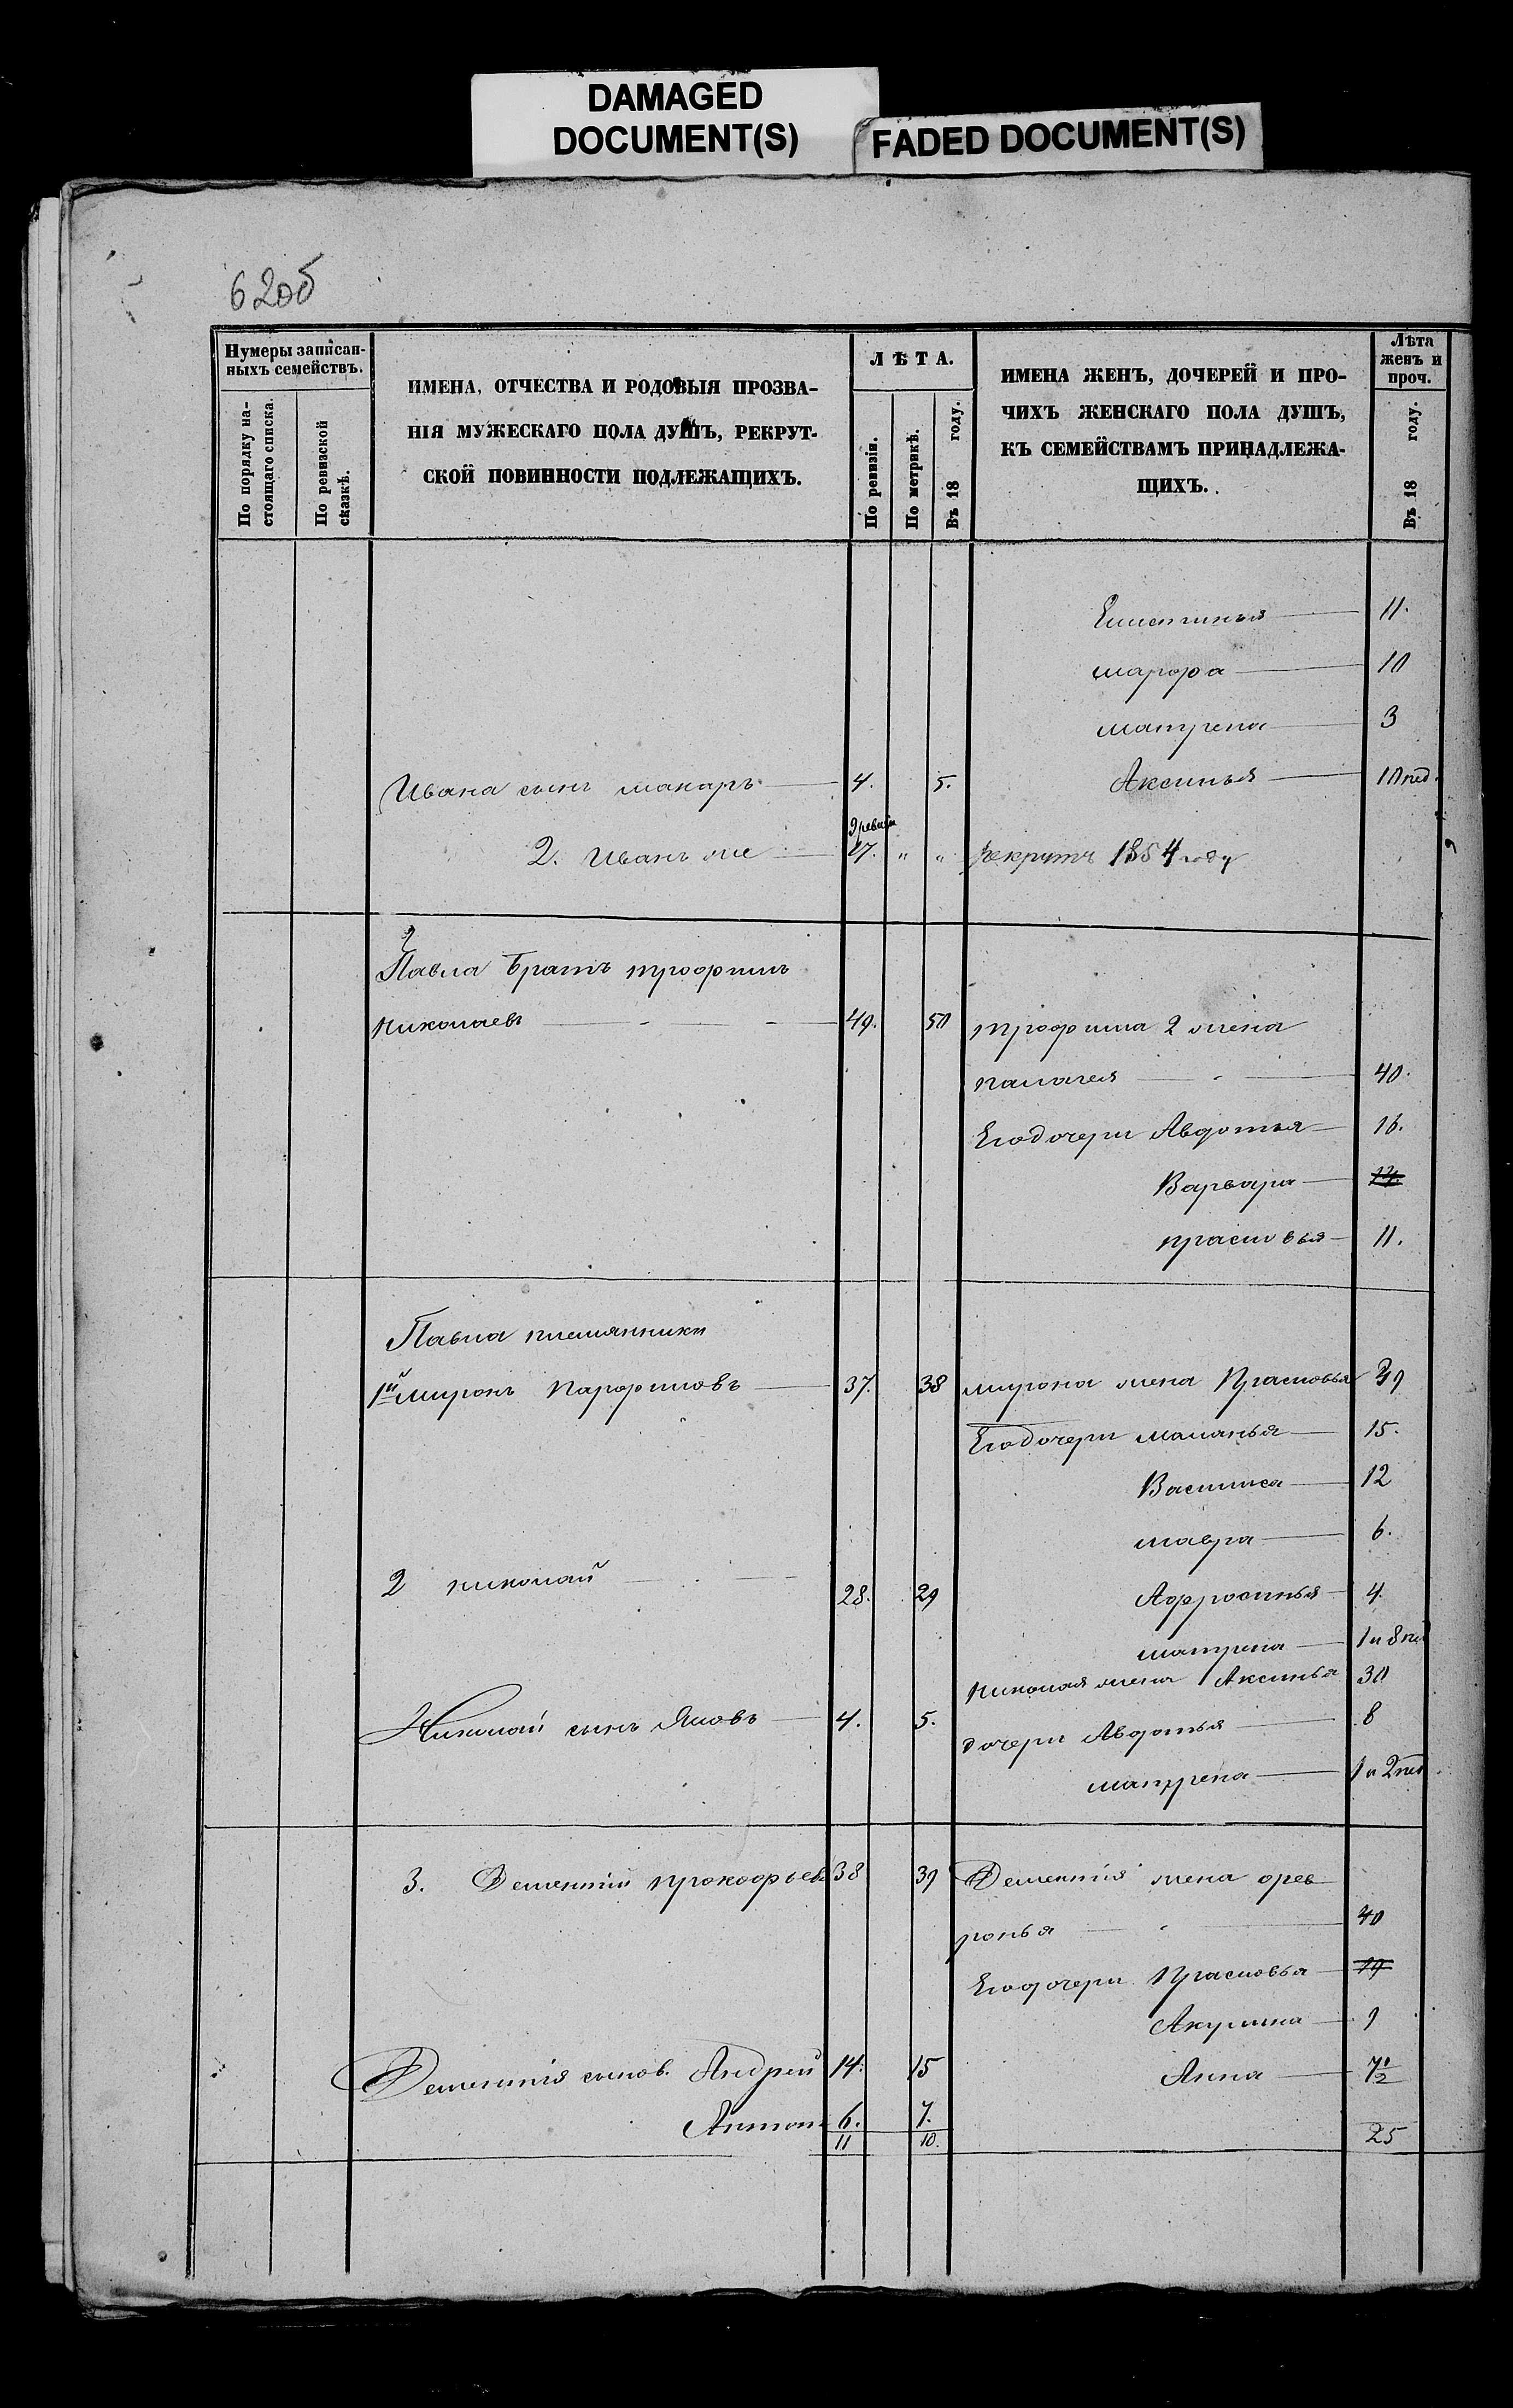 DAMAGED
DOCUMENT(S)
FADED DOCUMENT(S)
62об
Нумеры записан-
ныхъ семействъ.
По порядку на-
стоящаго списка.
По ревизской
сказкѣ.
ИМЕНА, ОТЧЕСТВА И РОДОВЫЯ ПРОЗВА-
НІЯ МУЖЕСКАГО ПОЛА ДУШЪ, РЕКРУТ-
СКОЙ ПОВИННОСТИ ПОДЛЕЖАЩИХЪ.
ЛѢТА.
По ревизіи.
По метрикѣ.
Въ 18 году.
ИМЕНА ЖЕНЪ, ДОЧЕРЕЙ И ПРО-
ЧИХЪ ЖЕНСКАГО ПОЛА ДУШЪ,
КЪ СЕМЕЙСТВАМЪ ПРИНАДЛЕЖА-
ЩИХЪ.
Лѣта
женъ и
проч.
Въ 18 году.
11.
марфа 10
матрена 3
Ивана сынъ макаръ 4. 5. Аксинья 10 нед.
9 ревизіи
2. Иванъ же 27. " " рекрутъ 1854 году
Павла братъ трофимъ
николаевъ 49. 50 трофима 2 жена
палагея 40.
Его дочери Авдотья 16.
Варвара 14.
прасковья 11.
Павла племянники
1й миронъ парфиловъ 37. 38 мирона жена Прасковья 39
Его дочери маланья 15.
Василиса 12
мавра 6.
2 николай 28. 29 Афросинья 4.
матрена 1 и 8 не
николая жена Аксинья 30
Николай сынъ Яковъ 4. 5. дочери Авдотья 8
матрена 1 и 2 нед
3. Дементій прокофьевъ 38 39 Дементія жена фев
ронья 40
Его дочери Прасковья 19
Акулина 9
Дементія сынов. Андрей 14. 15 Анна 7 1/2
Антонъ 6. 7.
11 10. 25